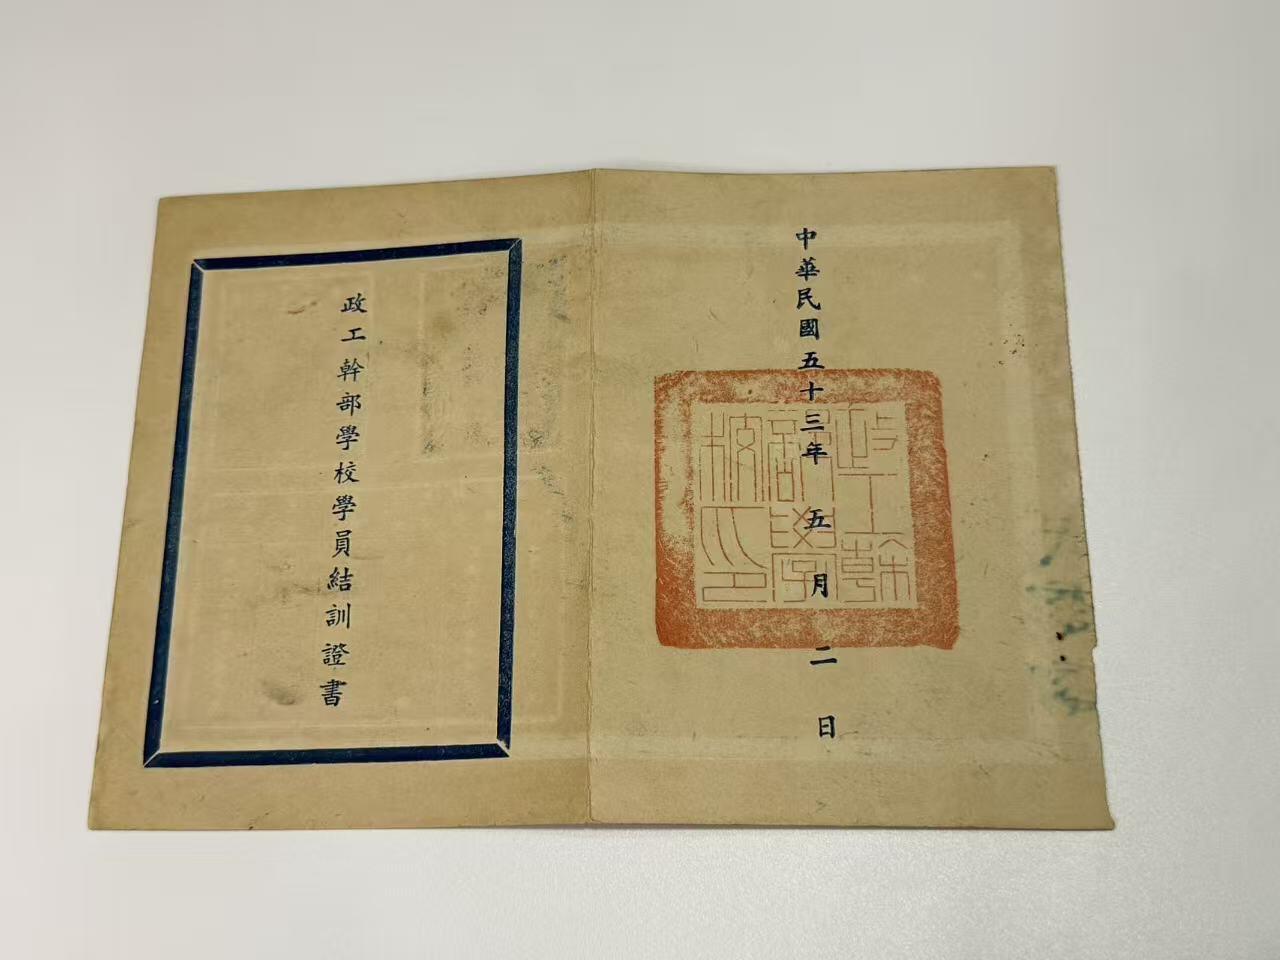 中華民國五十三年五月二日
政工幹部學校印
政工幹部學校學員結訓證書